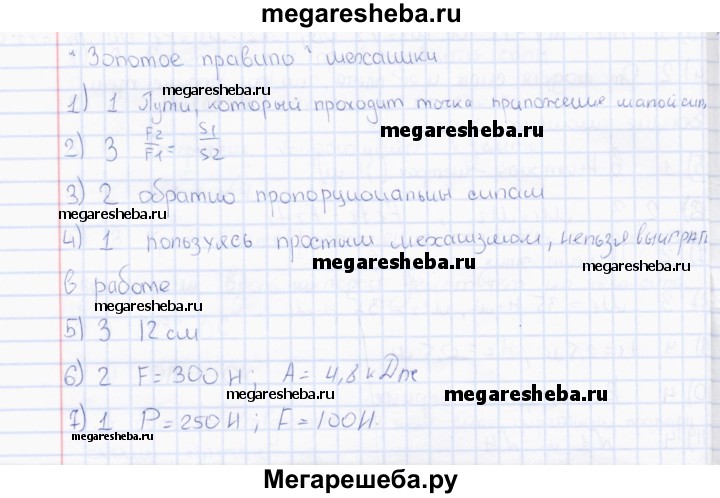 megaresheba.ru
"Золотое правило" механики
megaresheba.ru
1) 1 Пути, который проходит точка приложение малой сил,
megaresheba.ru
2) 3 F2/F1 = S1/S2
3) 2 обратно пропорциональны силам
megaresheba.ru
4) 1 пользуясь простым механизмом, нельзя выиграть
megaresheba.ru megaresheba.ru
в работе
megaresheba.ru
5) 3 12 см
6) 2 F = 300 Н; A = 4,8 кДж
megaresheba.ru megaresheba.ru
7) 1 P = 250 Н; F = 100 Н.
megaresheba.ru
megaresheba.ru
Мегарешеба.ру